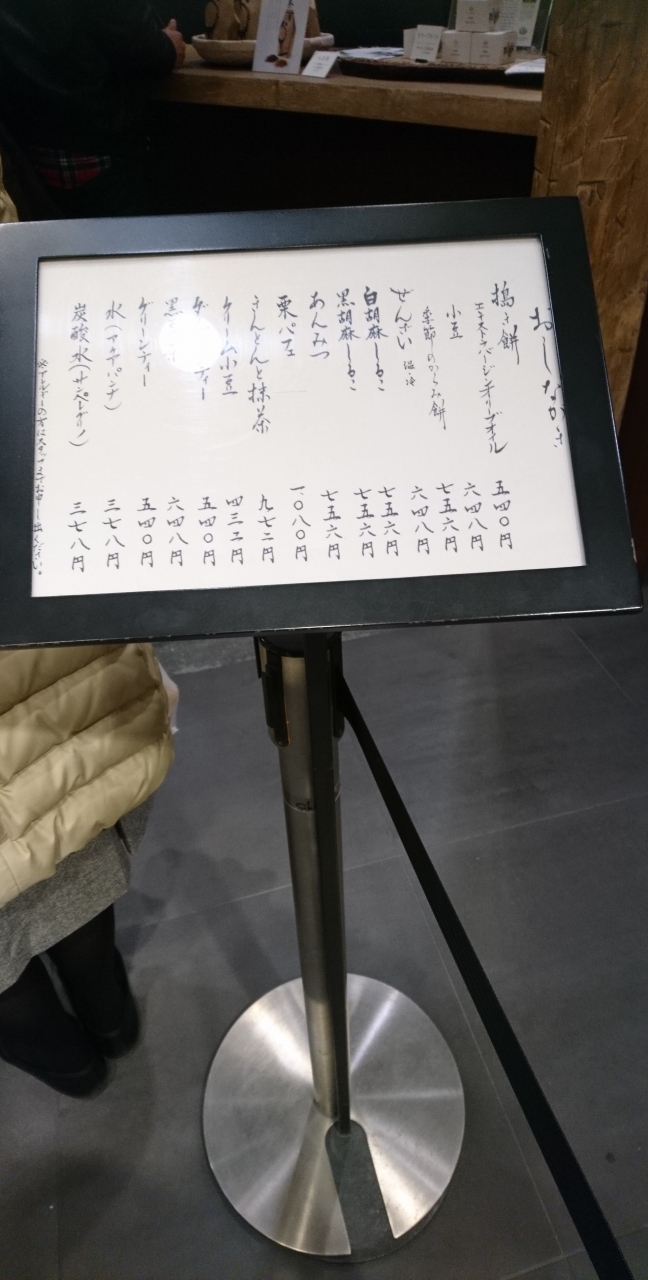 おしながき
搗き餅 五四〇円
エキストラバージンオリーブオイル 六四八円
小豆 七五六円
季節のからみ餅 六四八円
ぜんざい 温・冷 七五六円
白胡麻しるこ 七五六円
黒胡麻しるこ 七五六円
あんみつ
栗パフェ 一、〇八〇円
きんとんと抹茶 九七二円
クリーム小豆 四三二円
ティー 五四〇円
黒 六四八円
グリーンティー 五四〇円
水(アクアパンナ) 三七八円
炭酸水(サンペレグリノ) 三七八円
※アレルギーの方はスタッフまでお申し出ください。